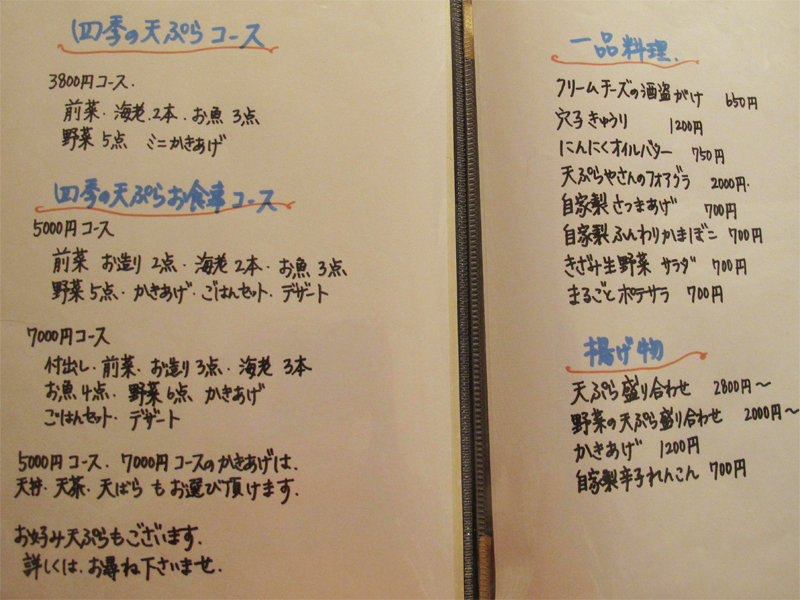 四季の天ぷらコース
3800円コース.
前菜・海老.2本.お魚3点
野菜5点 ミニかきあげ
四季の天ぷらお食事コース
5000円コース
前菜 お造り2点・海老2本・お魚3点
野菜5点・かきあげ・ごはんセット・デザート
7000円コース
付出し・前菜・お造り3点・海老3本
お魚4点・野菜6点 かきあげ
ごはんセット・デザート
5000円コース.7000円コースのかきあげは.
天丼・天茶・天ばらもお選び頂けます.
お好み天ぷらもございます.
詳しくは.お尋ね下さいませ.
一品料理.
クリームチーズの酒盗がけ 650円
穴子きゅうり 1200円
にんにくオイルバター 750円
天ぷらやさんのフォアグラ 2000円.
自家製さつまあげ 700円
自家製ふんわりかまぼこ 700円
きざみ生野菜サラダ 700円
まるごとポテサラ 700円
揚げ物
天ぷら盛り合わせ 2800円〜
野菜の天ぷら盛り合わせ 2000円〜
かきあげ 1200円
自家製辛子れんこん 700円